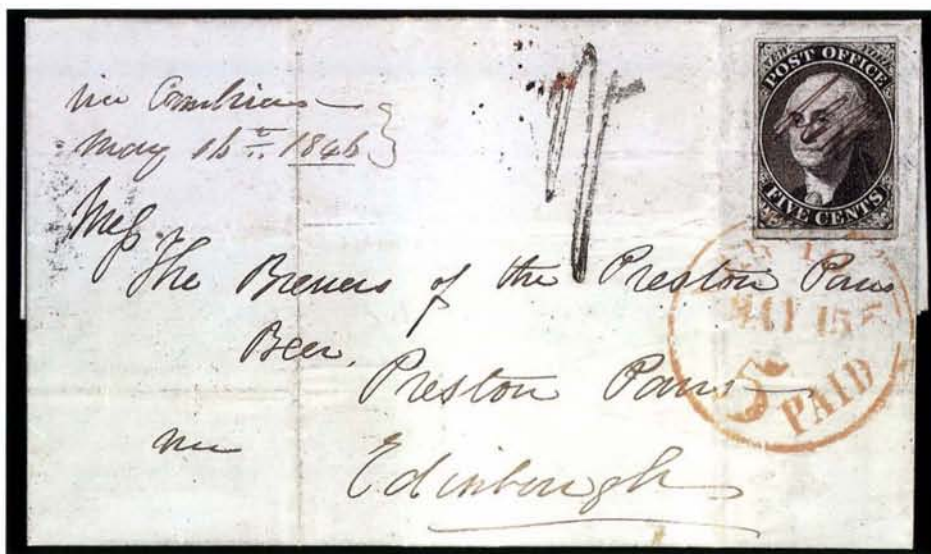 via Cambria
May 16th 1846
Mess
The Brewers of the Preston Pans
Beer,
Preston Pans
near
Edinburgh
POST OFFICE
FIVE CENTS
NEW YORK
MAY 15
5
PAID